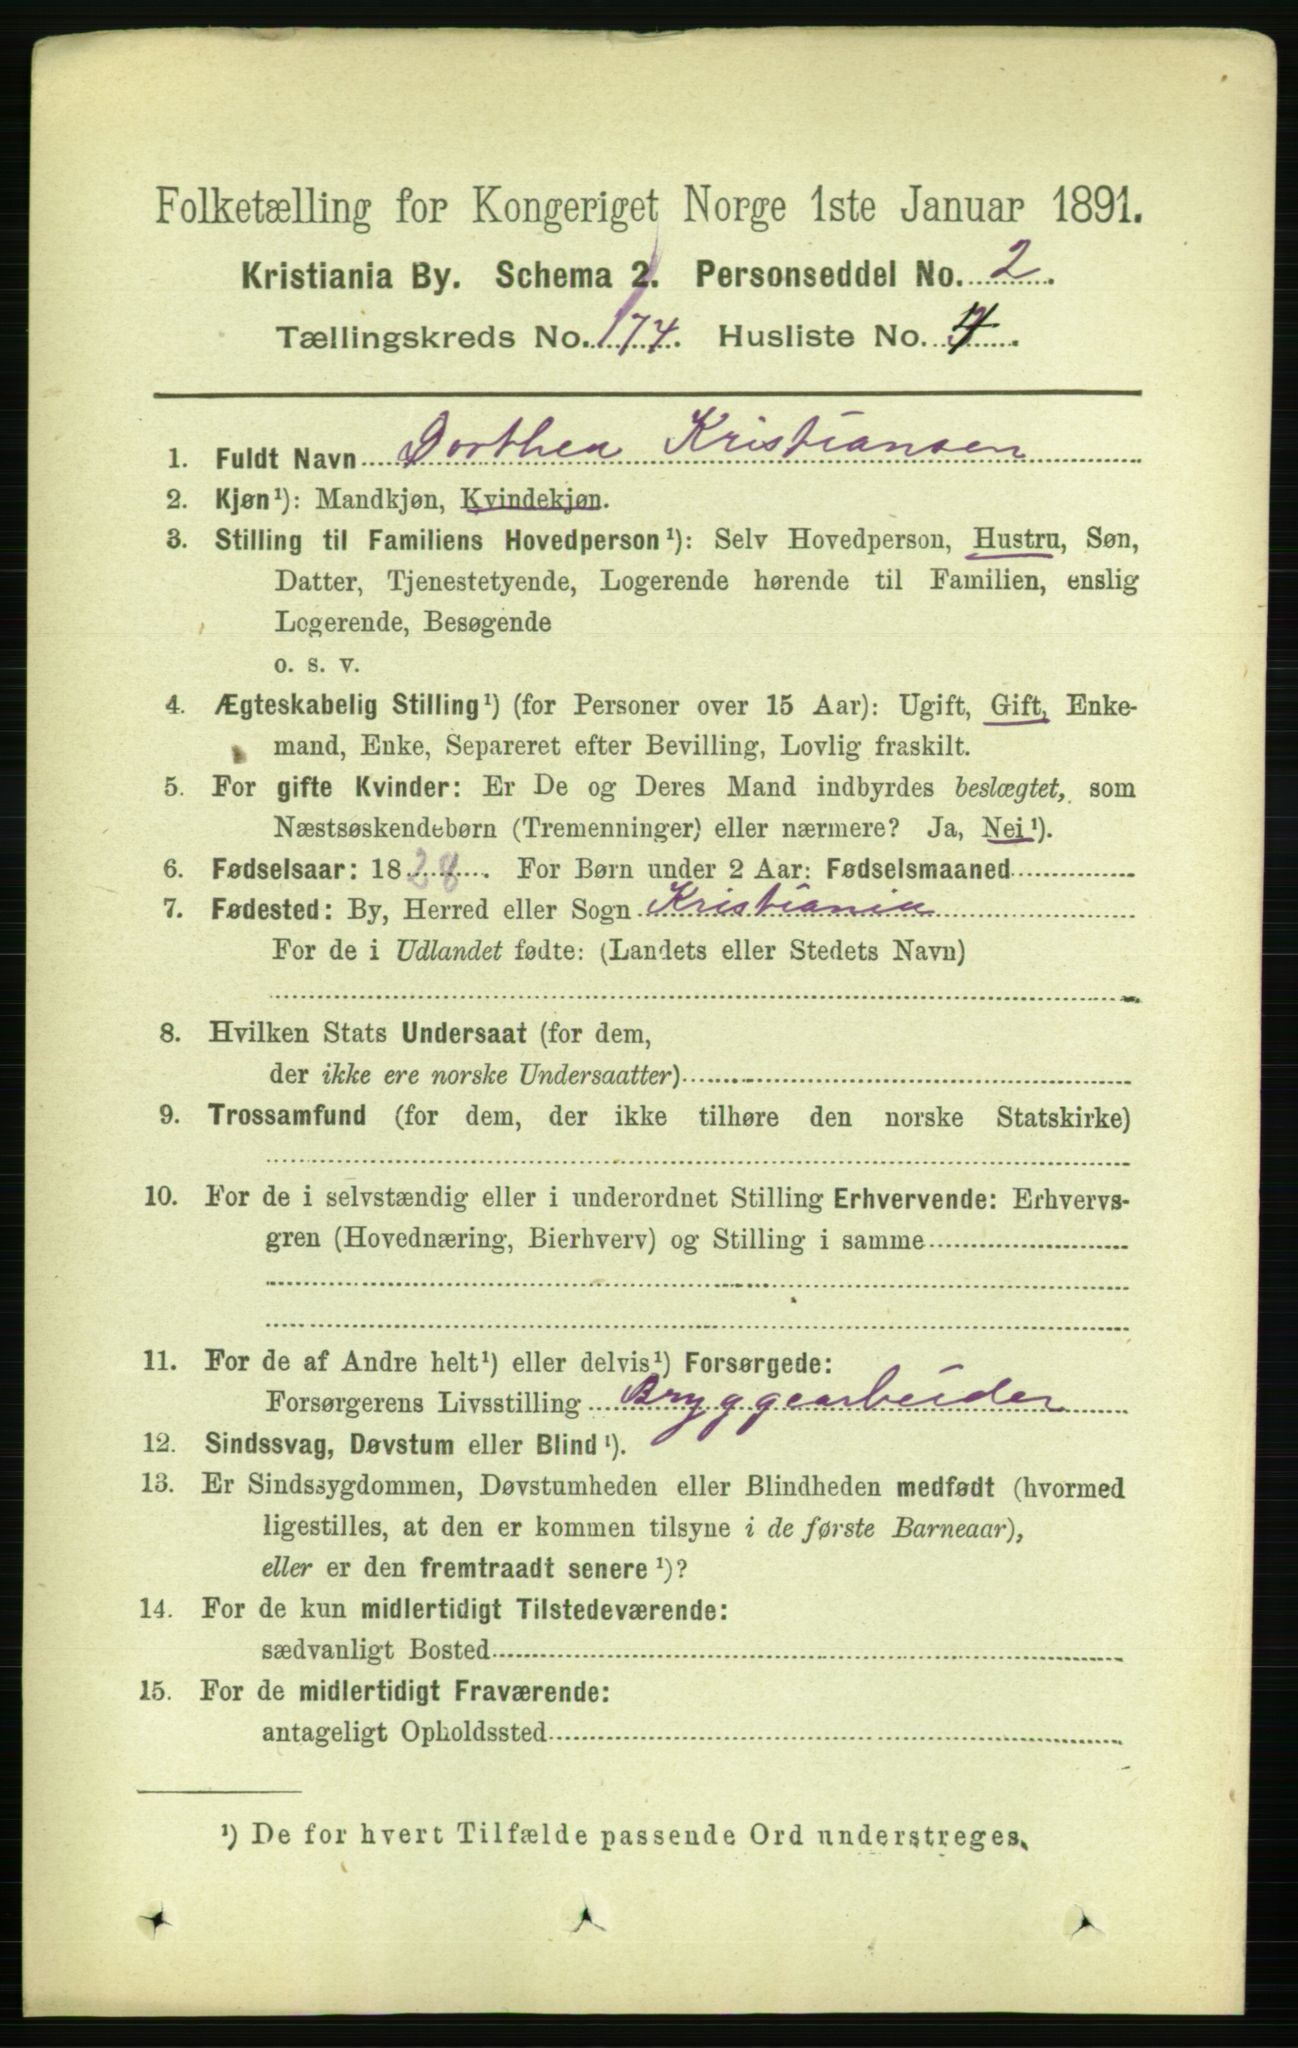 Folketælling for Kongeriget Norge 1ste Januar 1891.
Kristiania By. Schema 2. Personseddel No. 2.
Tællingskreds No. 174. Husliste No. 4.
1. Fuldt Navn Dorthea Kristiansen
2. Kjøn¹): Mandkjøn, Kvindekjøn.
3. Stilling til Familiens Hovedperson¹): Selv Hovedperson, Hustru, Søn,
Datter, Tjenestetyende, Logerende hørende til Familien, enslig
Logerende, Besøgende
o. s. v.
4. Ægteskabelig Stilling¹) (for Personer over 15 Aar): Ugift, Gift, Enke-
mand, Enke, Separeret efter Bevilling, Lovlig fraskilt.
5. For gifte Kvinder: Er De og Deres Mand indbyrdes beslægtet, som
Næstsøskendebørn (Tremenninger) eller nærmere? Ja, Nei¹).
6. Fødselsaar: 1828. For Børn under 2 Aar: Fødselsmaaned
7. Fødested: By, Herred eller Sogn Kristiania
For de i Udlandet fødte: (Landets eller Stedets Navn)
8. Hvilken Stats Undersaat (for dem,
der ikke ere norske Undersaatter)
9. Trossamfund (for dem, der ikke tilhøre den norske Statskirke)
10. For de i selvstændig eller i underordnet Stilling Erhvervende: Erhvervs-
gren (Hovednæring, Bierhverv) og Stilling i samme
11. For de af Andre helt¹) eller delvis¹) Forsørgede:
Forsørgerens Livsstilling Bryggearbeider
12. Sindssvag, Døvstum eller Blind¹).
13. Er Sindssygdommen, Døvstumheden eller Blindheden medfødt (hvormed
ligestilles, at den er kommen tilsyne i de første Barneaar),
eller er den fremtraadt senere¹)?
14. For de kun midlertidigt Tilstedeværende:
sædvanligt Bosted
15. For de midlertidigt Fraværende:
antageligt Opholdssted
¹) De for hvert Tilfælde passende Ord understreges.